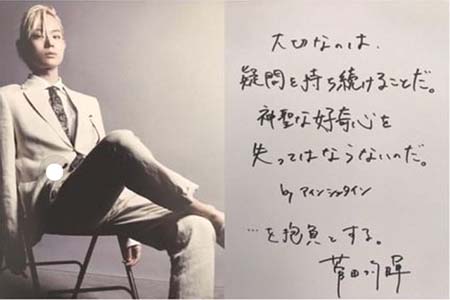 大切なのは、
疑問を持ち続けることだ。
神聖な好奇心を
失ってはならないのだ。
by アインシュタイン
…を抱負とする。
菅田将暉